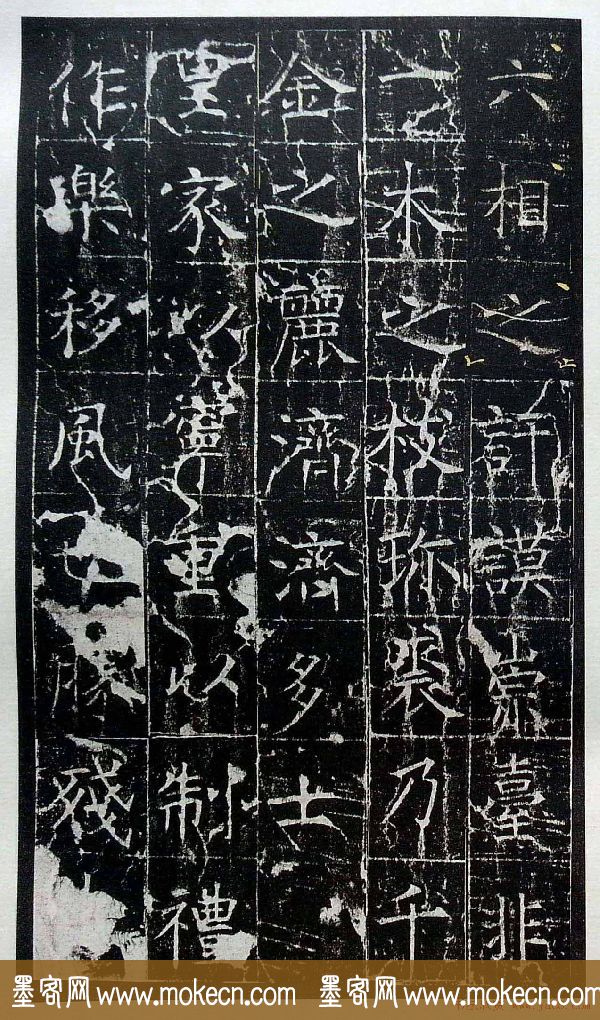 六相之訏謨崇臺非
一木之枝珎裘乃千
金之麗濟濟多士
皇家以寧重以制禮
作樂移風勝殘
墨客网 www.mokecn.com 墨客网 www.mokecn.com